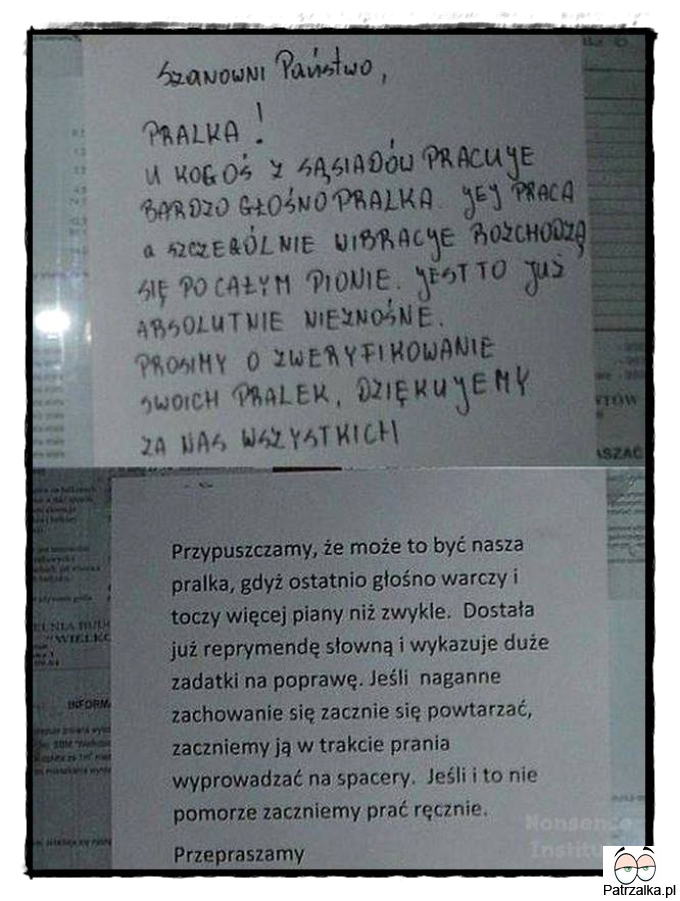 Szanowni Państwo,
PRALKA!
U KOGOŚ Z SĄSIADÓW PRACUJE
BARDZO GŁOŚNO PRALKA. JEJ PRACA
a SZCZEGÓLNIE WIBRACJE ROZCHODZĄ
SIĘ PO CAŁYM PIONIE. JEST TO JUŻ
ABSOLUTNIE NIEZNOŚNE.
PROSIMY O ZWERYFIKOWANIE
SWOICH PRALEK, DZIĘKUJEMY
ZA NAS WSZYSTKICH
ASZAĆ
Przypuszczamy, że może to być nasza
pralka, gdyż ostatnio głośno warczy i
toczy więcej piany niż zwykle. Dostała
już reprymendę słowną i wykazuje duże
zadatki na poprawę. Jeśli naganne
zachowanie się zacznie się powtarzać,
zaczniemy ją w trakcie prania
wyprowadzać na spacery. Jeśli i to nie
pomorze zaczniemy prać ręcznie.
Przepraszamy
INFORM
Nonsense
Institu
Patrzalka.pl